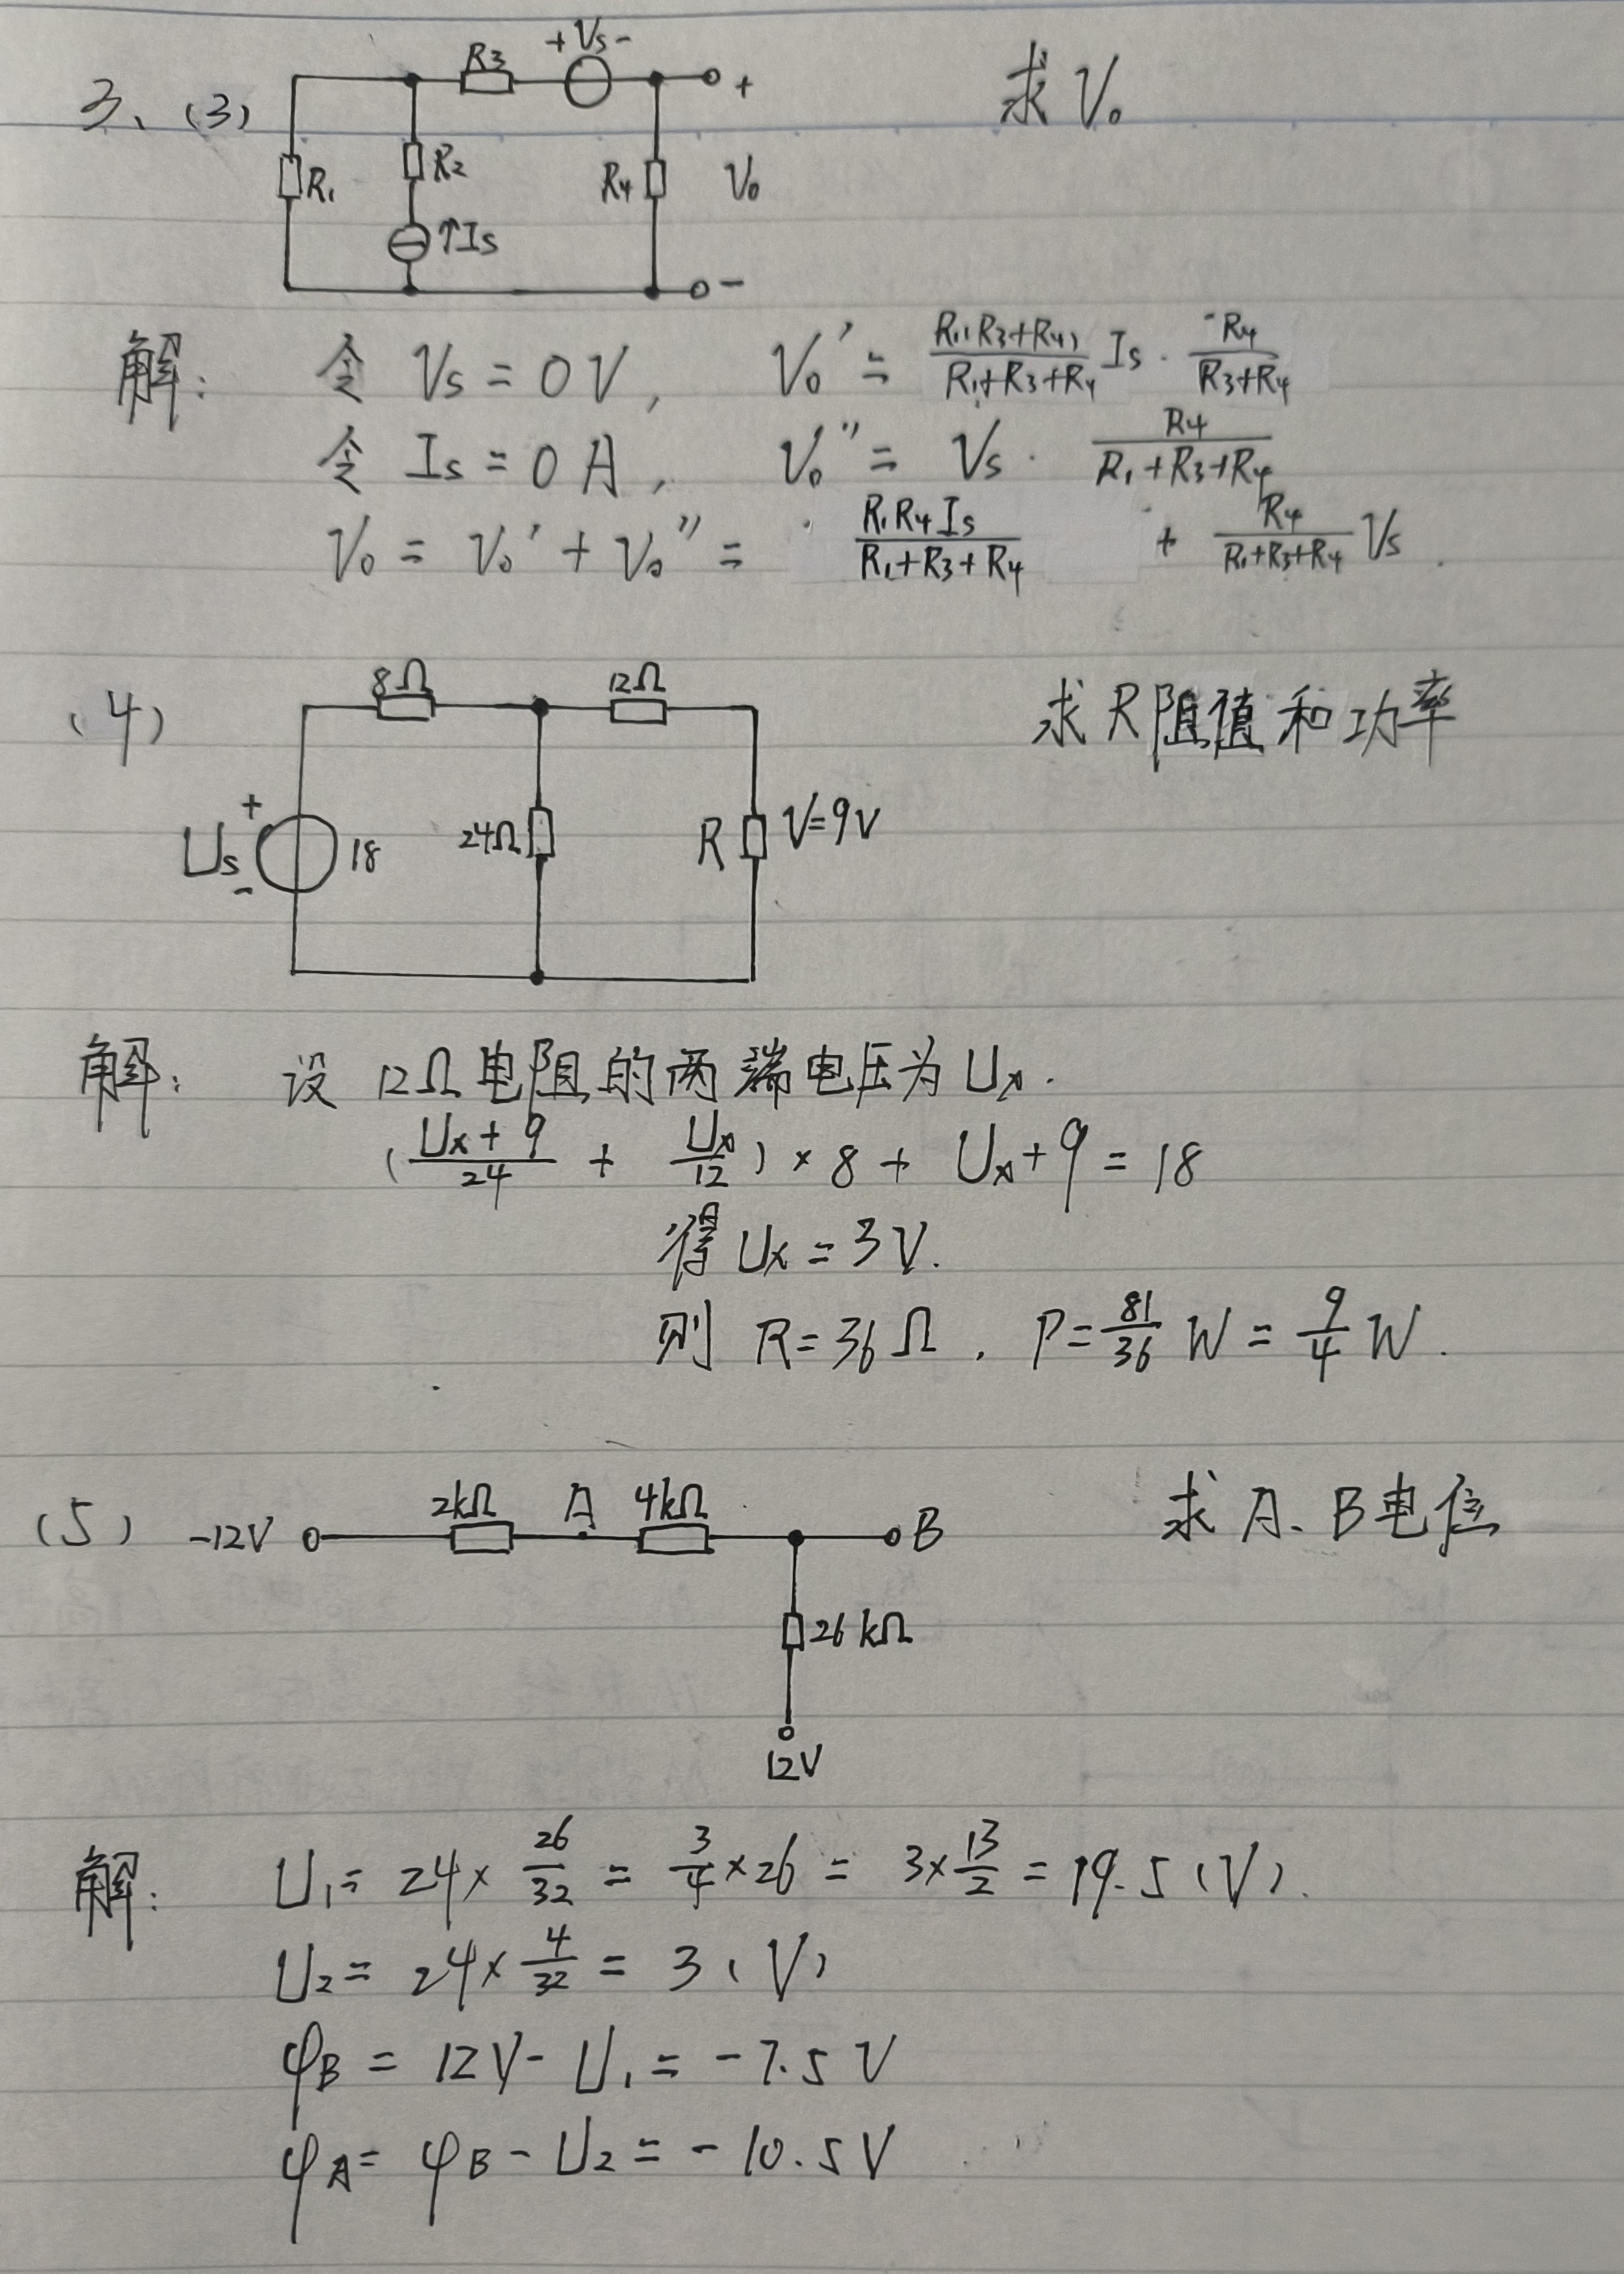 3、(3) R3 +Vs- 求V₀
+
R₁ R₂ R4 V₀
↑Is
-
解: 令 Vs = 0V, V₀' = R₁(R3+R4)/(R₁+R3+R4) Is · R4/(R3+R4)
令 Is = 0A, V₀'' = Vs · R4/(R₁+R3+R4)
V₀ = V₀' + V₀'' = R₁R4Is/(R₁+R3+R4) + R4/(R₁+R3+R4) Vs
(4) 8Ω 12Ω 求R阻值和功率
+
Us 18 24Ω R V=9V
-
解: 设 12Ω电阻的两端电压为Ux.
((Ux+9)/24 + Ux/12) × 8 + Ux+9 = 18
得 Ux = 3V.
则 R=36Ω . P=81/36 W = 9/4 W.
(5) -12V 2kΩ A 4kΩ B 求A、B电位
26kΩ
12V
解: U₁= 24× 26/32 = 3/4 ×26 = 3× 13/2 = 19.5 (V).
U₂= 24× 4/32 = 3 (V)
φB = 12V - U₁ = -7.5V
φA = φB - U₂ = -10.5V